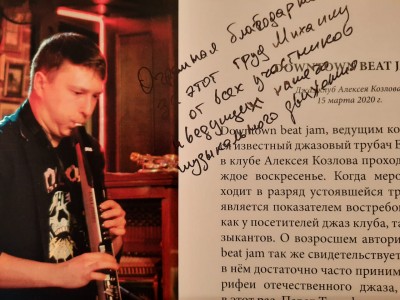 Огромная благодарность
за этот труд Михаилу
от всех участников
и ведущих нашего
музыкального движения
DOWNTOWN BEAT J
Джаз-клуб Алексея Козлова
15 марта 2020 г.
Downtown beat jam, ведущим ко
известный джазовый трубач В
в клубе Алексея Козлова проход
ждое воскресенье. Когда меро
ходит в разряд устоявшейся тр
является показателем востребо
как у посетителей джаз клуба, та
зыкантов. О возросшем автори
beat jam так же свидетельствует
в нём достаточно часто приним
рифеи отечественного джаза,